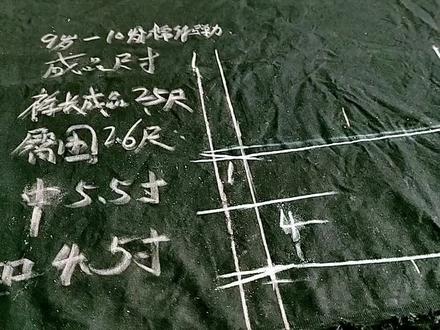 9岁一10岁
成品尺寸
长成品 2.5尺
臀围 2.6尺
中 5.5寸
口 4.5寸
4